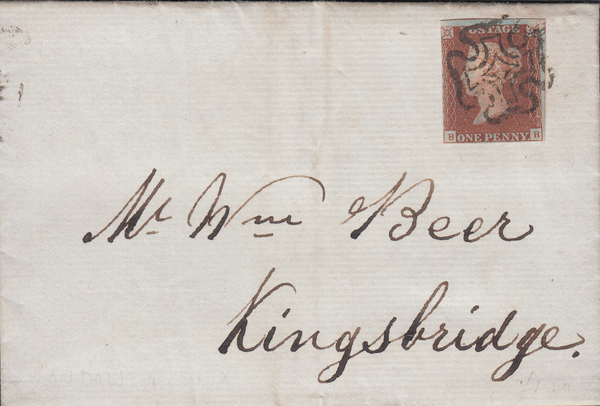 POSTAGE
B ONE PENNY. B
Mr. Wm Beer
Kingsbridge.